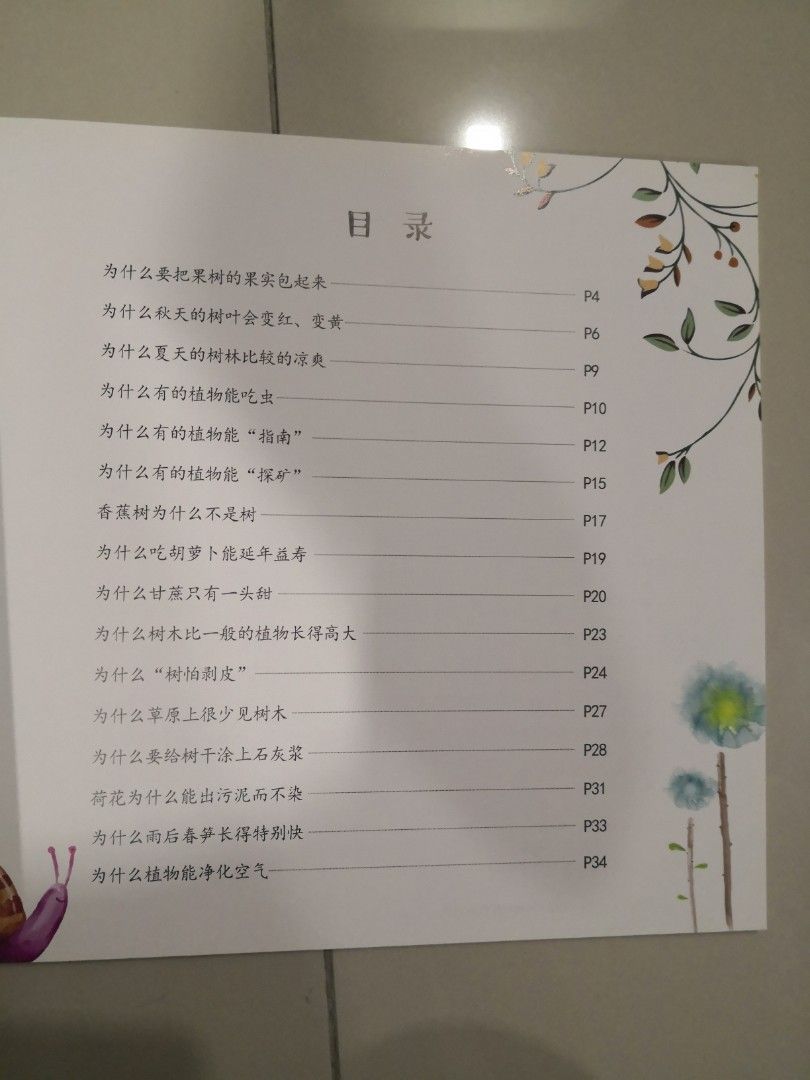 目 录
为什么要把果树的果实包起来 P4
为什么秋天的树叶会变红、变黄 P6
为什么夏天的树林比较的凉爽 P9
为什么有的植物能吃虫 P10
为什么有的植物能“指南” P12
为什么有的植物能“探矿” P15
香蕉树为什么不是树 P17
为什么吃胡萝卜能延年益寿 P19
为什么甘蔗只有一头甜 P20
为什么树木比一般的植物长得高大 P23
为什么“树怕剥皮” P24
为什么草原上很少见树木 P27
为什么要给树干涂上石灰浆 P28
荷花为什么能出污泥而不染 P31
为什么雨后春笋长得特别快 P33
为什么植物能净化空气 P34